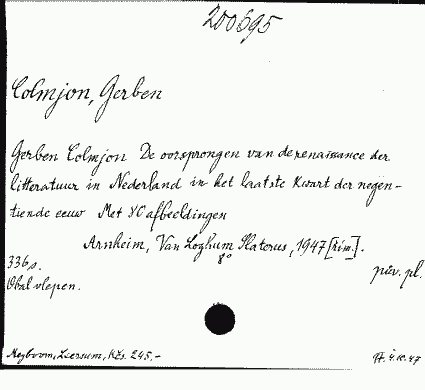 200695
Colmjon, Gerben
Gerben Colmjon De oorsprongen van de renaissance der
litteratuur in Nederland in het laatste kwart der negen-
tiende eeuw Met 40 afbeeldingen
Arnheim, Van Loghum Slaterus, 1947 [rim.].
336 s. 8°
přív. pl.
Obal vlepen.
Meyboom, Leersum, Kčs. 245.-
4.10.47